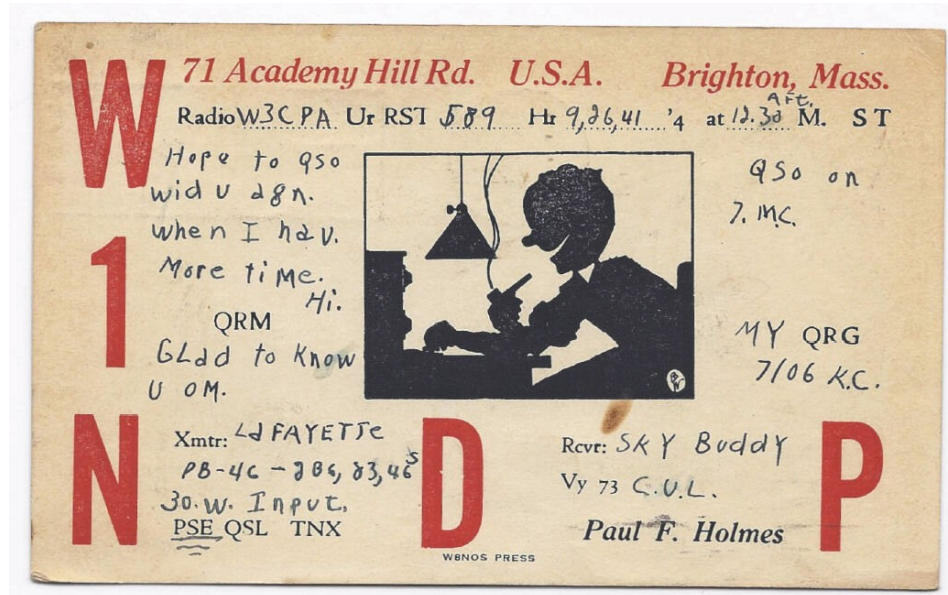 W1NDP
71 Academy Hill Rd. U.S.A. Brighton, Mass.
Radio W3CPA Ur RST 589 Hr 9,26,41 '4 at 12.30 Aft. M. ST
Hope to QSO
wid u agn.
when I hav.
More time.
Hi.
QRM
GLad to know
U OM.
QSO on
7. M.C.
MY QRG
7106 K.C.
Xmtr: LaFAYETTe
30. W. Input.
PSE QSL TNX
Rcvr: SKY Buddy
Vy 73 C.U.L.
Paul F. Holmes
W8NOS PRESS